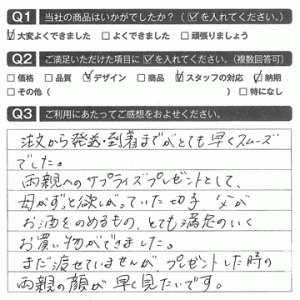 Q1 当社の商品はいかがでしたか？（☑を入れてください。）
☑大変よくできました □よくできました □頑張りましょう
Q2 ご満足いただけた項目に☑を入れてください。（複数回答可）
□価格 □品質 ☑デザイン □商品 ☑スタッフの対応 ☑納期
□その他（ ） □特になし
Q3 ご利用にあたってご感想をおよせください。
注文から発送・到着までがとても早くスムーズ
でした。
両親へのサプライズプレゼントとして、
母がずっと欲しがっていた切子 父が
お酒をのめるもの、とても満足のいく
お買い物ができました。
まだ渡せていませんが、プレゼントした時の
両親の顔が早く見たいです。